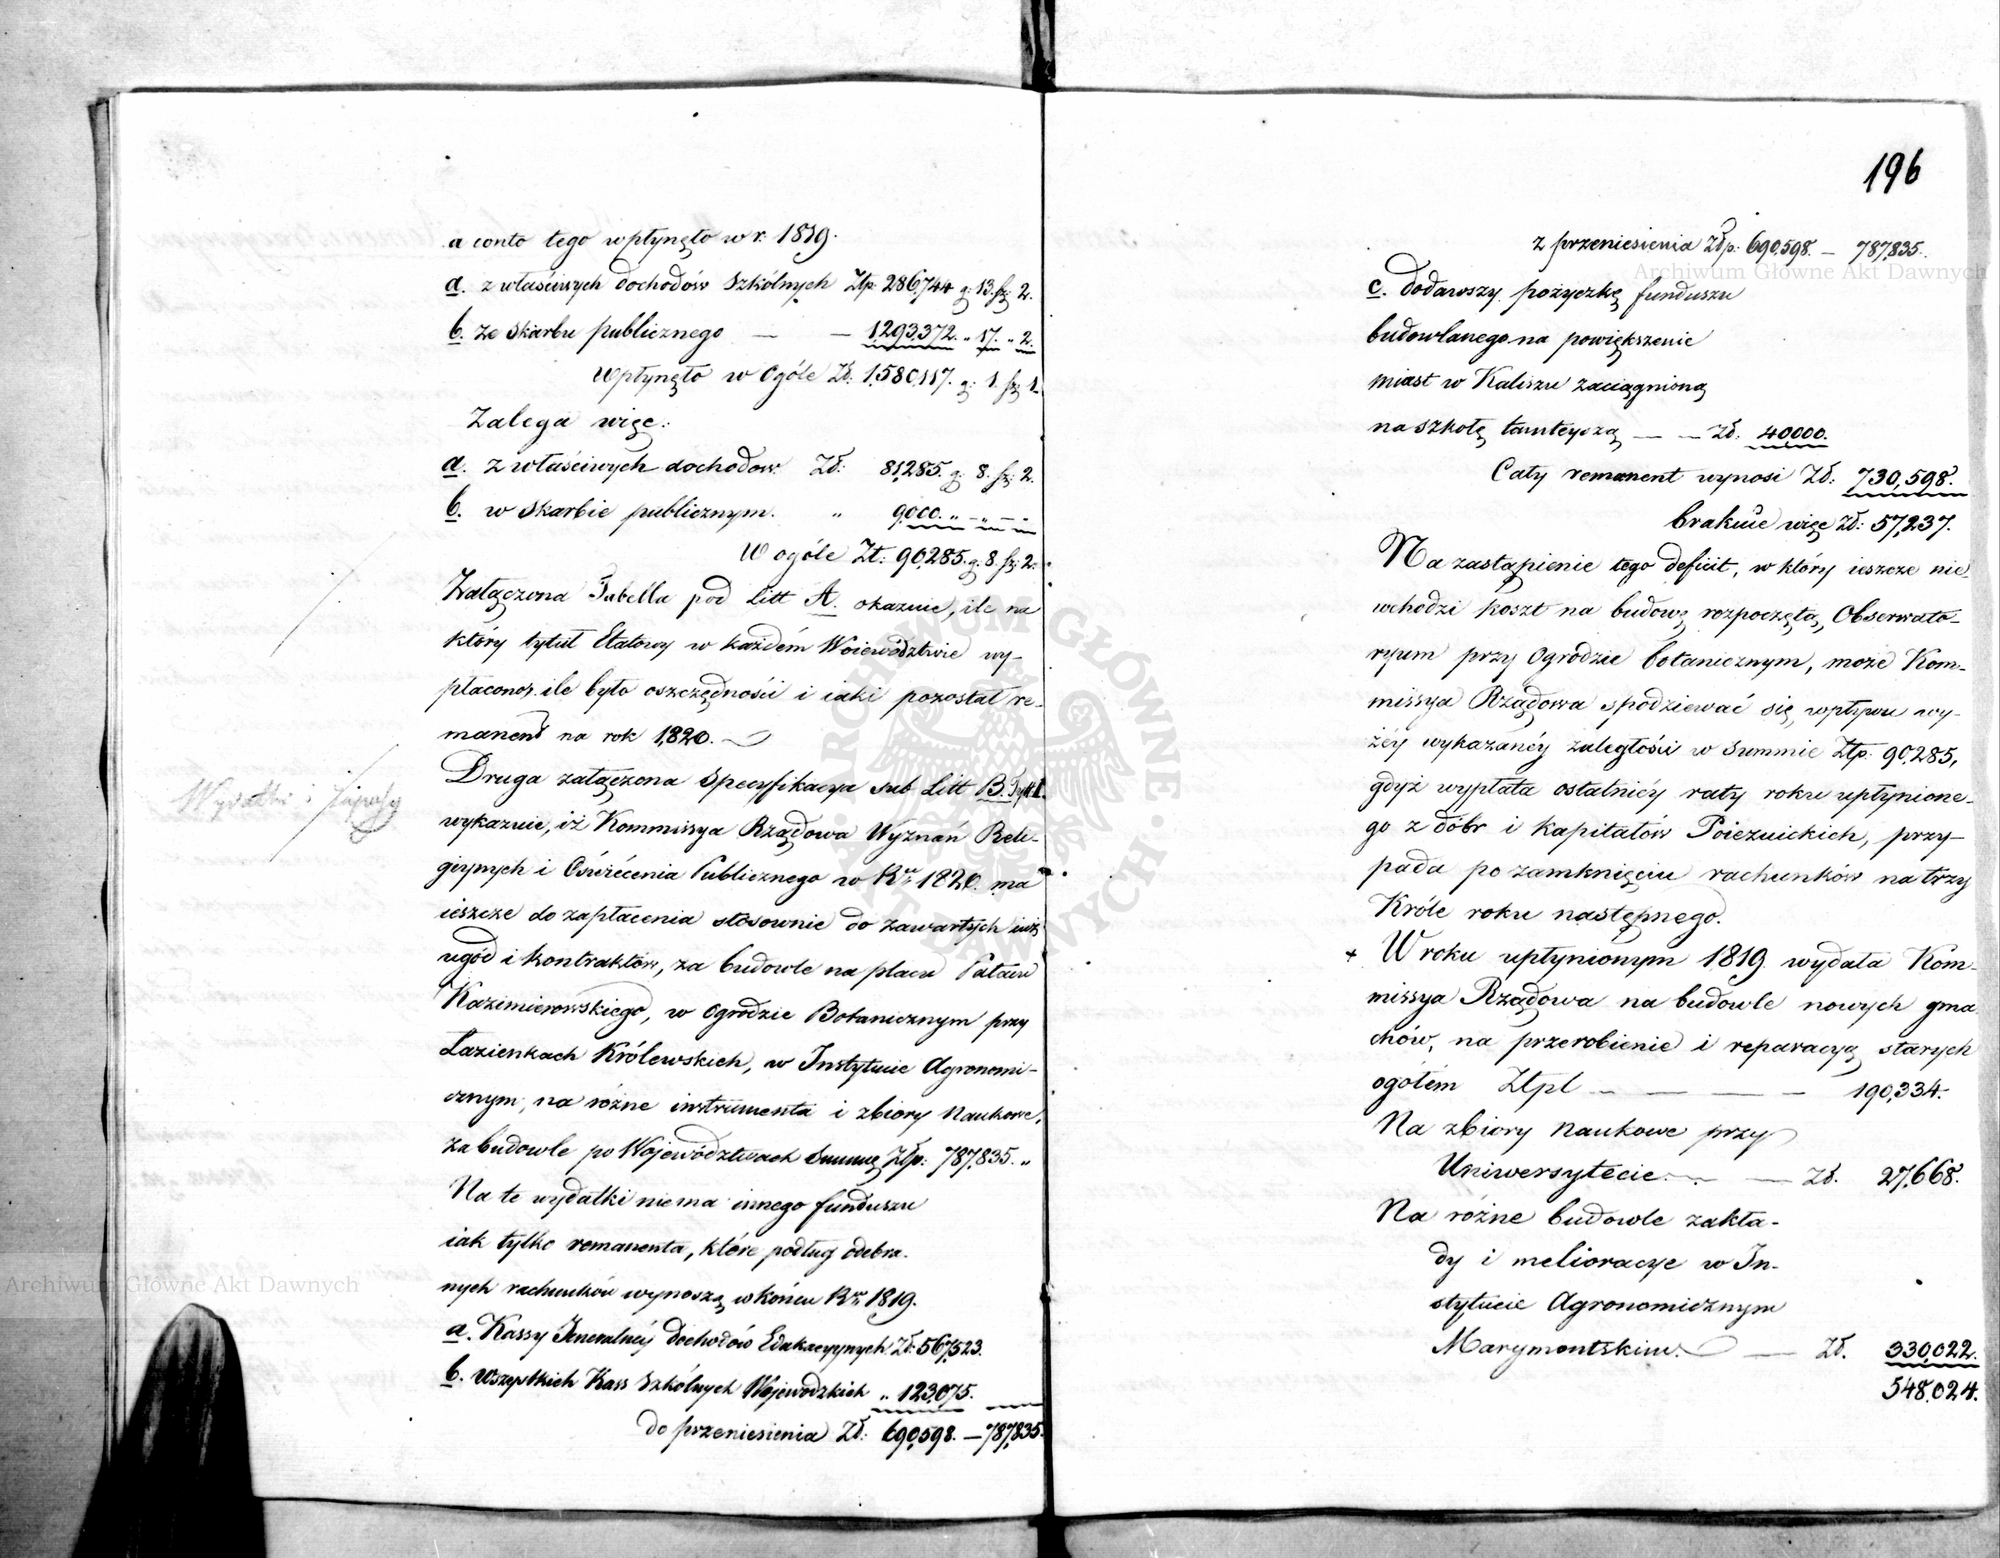 a conto tego wpłynęło w r: 1819.
a. z właściwych dochodów szkólnych Złp: 286,744 g: 13. sz: 2.
b. ze skarbu publicznego — — 1,293,372. „ 17. „ 2.
Wpłynęło w Ogóle Zł: 1,580,117. g: 1. sz: 1.
Zalega więc:
a. z właściwych dochodow: Zł: 81,285. g: 8. sz: 2.
b. w skarbie publicznym. „ 9,000. „ – „ – –
W ogóle Zł: 90,285. g: 8. sz: 2.
Załączona Tabella pod Litt A. okazuie, ile na
który tytuł Etatowy w każdem Woiewództwie wy-
płacono, ile było oszczędności i iaki pozostał re-
manent na rok 1820.
Wydatki i
Druga załączona Specyfikacya sub Litt B.
wykazuie, iż Kommissya Rządowa Wyznań Reli-
giynych i Oświecenia Publicznego w Rku 1820. ma
ieszcze do zapłacenia stosownie do zawartych iuż
ugód i kontraktów, za budowle na placu Pałacu
Kazimierowskiego, w Ogrodzie Botanicznym przy
Łazienkach Królewskich, w Instytucie Agronomi-
cznym, na różne instrumenta i zbiory Naukowe,
za budowle po Województwach Summę Złp: 787,835. „
Na te wydatki niema innego funduszu
iak tylko remanenta, które podług odebra-
nych rachunków wynoszą w końcu Rku 1819.
a. Kassy Jeneralnéy dochodów Edukacyynych Zł: 567,523.
b. Wszystkich Kass Szkólnych Wojewódzkich „ 123,075.
do przeniesienia Zł: 690,598. — 787,835.
196
z przeniesienia Złp: 690,598. — 787,835.
c. dodawszy pożyczkę funduszu
budowlanego na powiększenie
miast w Kaliszu zaciągnioną
na szkołę tamteyszą — — Zł: 40,000.
Cały remanent wynosi Zł: 730,598.
brakuie więc Zł: 57,237.
Na zastąpienie tego deficit, w który ieszcze nie
wchodzi koszt na budowę rozpoczętą, Obserwato-
ryum przy Ogrodzie botanicznym, może Kom-
missya Rządowa spodziewać się wpływu wy-
żéy wykazanéy zaległości w Summie Złp: 90,285,
gdyż wypłata ostatniéy raty roku upłynione-
go z dóbr i kapitałów Poiezuickich, przy-
pada po zamknięciu rachunków na trzy
Króle roku następnego.
+ W roku upłynionym 1819. wydała Kom-
missya Rządowa na budowle nowych gma
chów, na przerobienie i reparacyą starych
ogółem Złpl — — — — 190,334.
Na zbiory Naukowe przy
Uniwersytecie — — Zł. 27,668.
Na różne budowle zakła-
dy i melioracye w In-
stytucie Agronomicznym
Marymontskim. — Zł. 330,022.
548,024.
Archiwum Główne Akt Dawnych
Archiwum Główne Akt Dawnych
ARCHIWUM GŁÓWNE AKT DAWNYCH